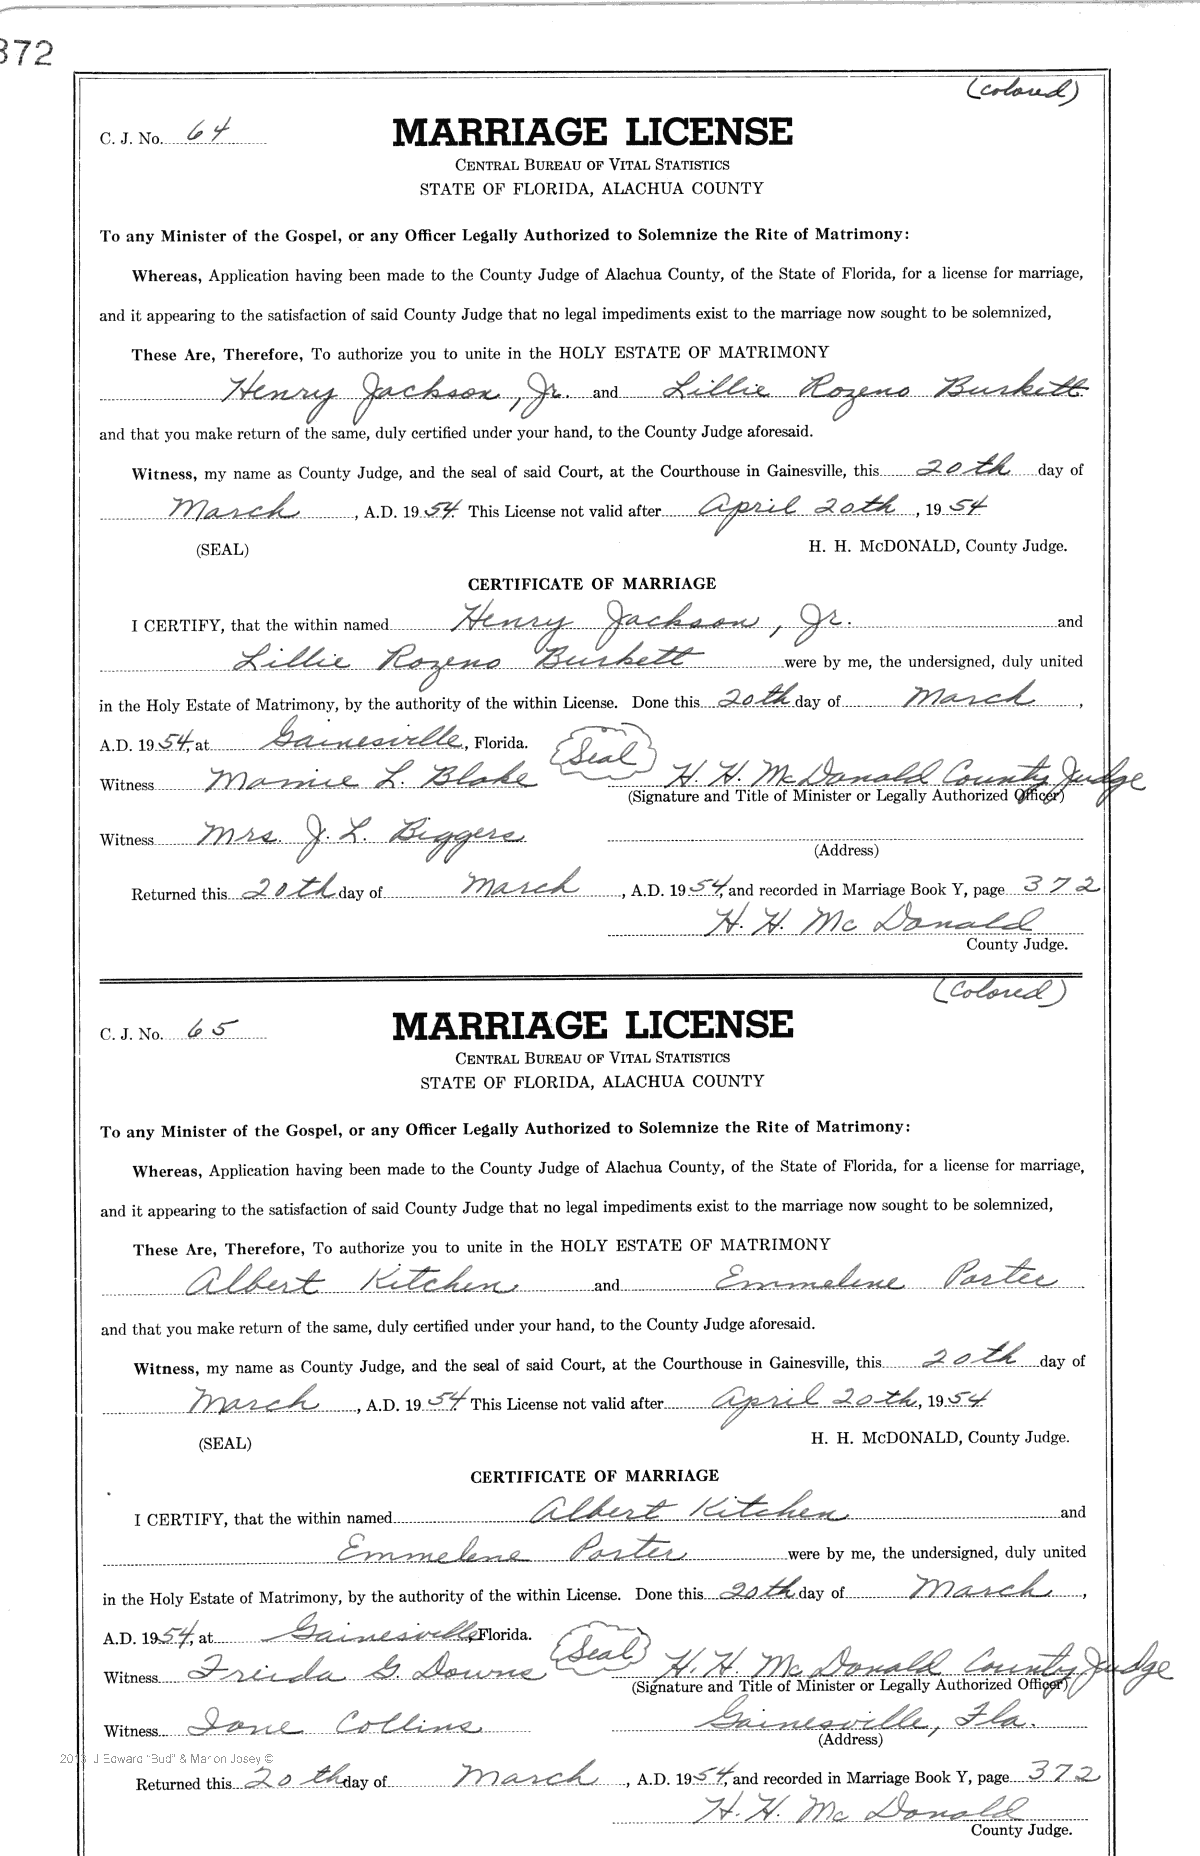 372
(colored)
C. J. No. 64
MARRIAGE LICENSE
CENTRAL BUREAU OF VITAL STATISTICS
STATE OF FLORIDA, ALACHUA COUNTY
To any Minister of the Gospel, or any Officer Legally Authorized to Solemnize the Rite of Matrimony:
Whereas, Application having been made to the County Judge of Alachua County, of the State of Florida, for a license for marriage,
and it appearing to the satisfaction of said County Judge that no legal impediments exist to the marriage now sought to be solemnized,
These Are, Therefore, To authorize you to unite in the HOLY ESTATE OF MATRIMONY
Henry Jackson, Jr. and Lillie Rozeno Burkett
and that you make return of the same, duly certified under your hand, to the County Judge aforesaid.
Witness, my name as County Judge, and the seal of said Court, at the Courthouse in Gainesville, this 20th day of
March, A.D. 1954. This License not valid after April 20th, 1954
(SEAL) H. H. McDONALD, County Judge.
CERTIFICATE OF MARRIAGE
I CERTIFY, that the within named Henry Jackson, Jr. and
Lillie Rozeno Burkett were by me, the undersigned, duly united
in the Holy Estate of Matrimony, by the authority of the within License. Done this 20th day of March,
A.D. 1954, at Gainesville, Florida. Seal
Witness Mamie L. Blake H. H. McDonald County Judge
(Signature and Title of Minister or Legally Authorized Officer)
Witness Mrs. J. L. Biggers
(Address)
Returned this 20th day of March, A.D. 1954, and recorded in Marriage Book Y, page 372
H. H. McDonald
County Judge.
(Colored)
C. J. No. 65
MARRIAGE LICENSE
CENTRAL BUREAU OF VITAL STATISTICS
STATE OF FLORIDA, ALACHUA COUNTY
To any Minister of the Gospel, or any Officer Legally Authorized to Solemnize the Rite of Matrimony:
Whereas, Application having been made to the County Judge of Alachua County, of the State of Florida, for a license for marriage,
and it appearing to the satisfaction of said County Judge that no legal impediments exist to the marriage now sought to be solemnized,
These Are, Therefore, To authorize you to unite in the HOLY ESTATE OF MATRIMONY
Albert Kitchen and Emmelene Porter
and that you make return of the same, duly certified under your hand, to the County Judge aforesaid.
Witness, my name as County Judge, and the seal of said Court, at the Courthouse in Gainesville, this 20th day of
March, A.D. 1954. This License not valid after April 20th, 1954
(SEAL) H. H. McDONALD, County Judge.
CERTIFICATE OF MARRIAGE
I CERTIFY, that the within named Albert Kitchen and
Emmelene Porter were by me, the undersigned, duly united
in the Holy Estate of Matrimony, by the authority of the within License. Done this 20th day of March,
A.D. 1954, at Gainesville, Florida. Seal
Witness Freida G. Downs H. H. McDonald County Judge
(Signature and Title of Minister or Legally Authorized Officer)
Witness Ione Collins Gainesville, Fla.
(Address)
J Edward "Bud" & Marion Josey ©
Returned this 20th day of March, A.D. 1954, and recorded in Marriage Book Y, page 372
H. H. McDonald
County Judge.